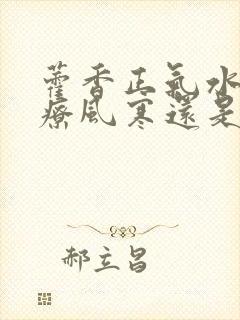 藿香正氣水
療風寒還是
郝立昌